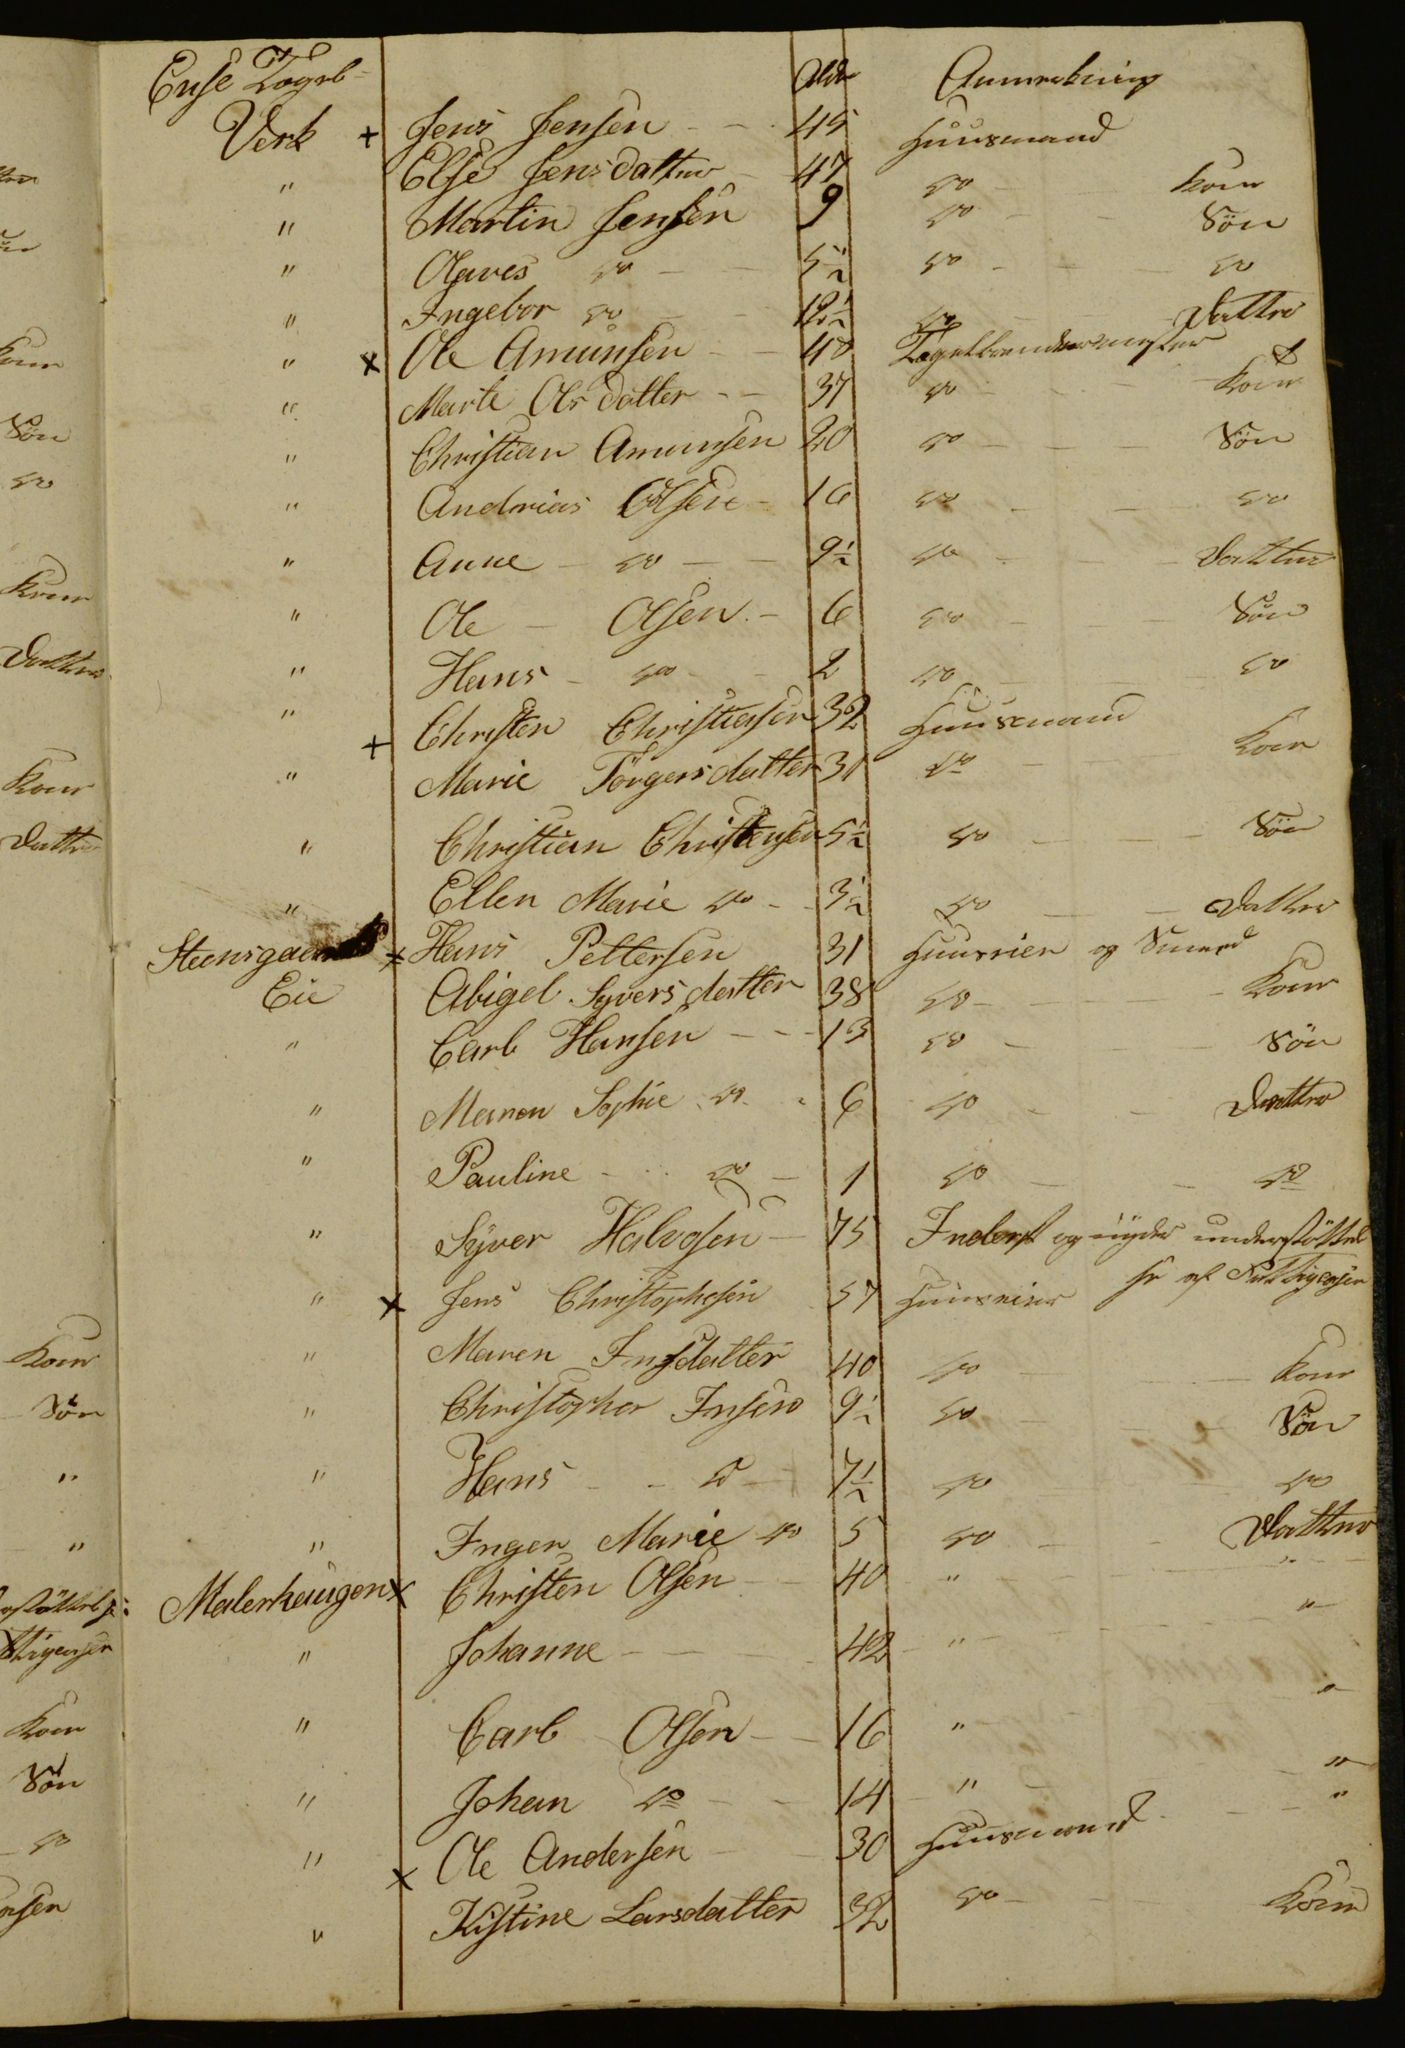 Ense Tagel- Alder Anmerkning
Verk + Jens Jensen - - 45 Huusmand
" Else Jensdatter - 47 do - Kone
" Martin Jensen 9 do - - Søn
" Olaves do - - 5½ do - - - do
" Ingebor do - - 12½ do - - Datter
" x Ole Amunsen - - 40 Tagelbrendermester
" Marte Olsdatter - - 37 do - - - Kone
" Christian Amunsen 20 do - - - Søn
" Andreas Olsen - 16 do - - - do
" Anne - do - - 9½ do - - - Datter
" Ole - Olsen - 6 do - - - Søn
" Hans - do - - 2 do - - - do
" + Christen Christiensen 32 Huusmand
" Marie Torgersdatter 31 do - - Kone
" Christian Christensen 5½ do - - - Søn
" Ellen Marie do - - 3½ do - - Datter
Steensgaards x Hans Pettersen 31 Huuseier og Smed
Eie Abigel Syversdatter 38 do - - - Kone
" Carl Hansen - - - 13 do - - - Søn
" Maren Sophie do - 6 do - - Datter
" Pauline - do - 1 do - - do
" Syver Halvosen - 75 Inderst og nyder understøttel
se af Fattigcassen
" x Jens Christophesen 57 Huuseier
" Maren Jensdatter 40 do - - Kone
" Christopher Jensen 9½ do - - Søn
" Hans - - do - 7½ do - - do
" Inger Marie do 5 do - - Datter
Malerhaugen x Christen Olsen - - 40 " - - "
" Johanne - - - - 42 " - - "
" Carl Olsen - - 16 " - - "
" Johan do - - 14 " - - "
" x Ole Andersen - - 30 Huusmand - - "
" Kistine Larsdatter 32 do - - Kone